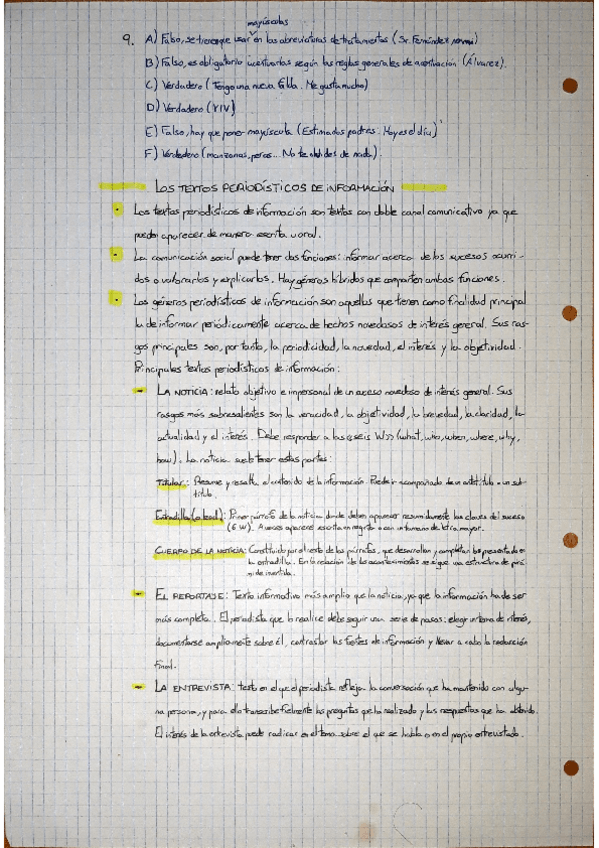 mayúsculas
9. A) Falso, se tiene que usar en las abreviaturas de tratamientos (Sr. Fernández, mi)
B) Falso, es obligatorio acentuarlas según las reglas generales de acentuación (Álvarez).
C) Verdadero (Tengo una nueva falda. Me gusta mucho)
D) Verdadero (XIV)
E) Falso, hay que poner mayúscula (Estimados padres: Hoy es el día)
F) Verdadero (manzanas, peras... No te olvides de nada).
LOS TEXTOS PERIODÍSTICOS DE INFORMACIÓN
Los textos periodísticos de información son textos con doble canal comunicativo ya que
pueden aparecer de manera escrita u oral.
La comunicación social puede tener dos funciones: informar acerca de los sucesos ocurri-
dos o valorarlos y explicarlos. Hay géneros híbridos que comparten ambas funciones.
Los géneros periodísticos de información son aquellos que tienen como finalidad principal
la de informar periódicamente acerca de hechos novedosos de interés general. Sus ras-
gos principales son, por tanto, la periodicidad, la novedad, el interés y la objetividad.
Principales textos periodísticos de información:
LA NOTICIA: relato objetivo e impersonal de un suceso novedoso de interés general. Sus
rasgos más sobresalientes son la veracidad, la objetividad, la brevedad, la claridad, la
actualidad y el interés. Debe responder a las «seis W» (what, who, when, where, why,
how). La noticia suele tener estas partes:
Titular: Resume y resalta el contenido de la información. Puede ir acompañado de un antetítulo o un sub-
título.
Entradilla (o lead): Primer párrafo de la noticia donde deben aparecer resumidamente las claves del suceso
(6 W). A veces aparece escrita en negrita o con un tamaño de letra mayor.
CUERPO DE LA NOTICIA: Constituido por el resto de los párrafos, que desarrollan y completan lo presentado en
la entradilla. En la relación de los acontecimientos se sigue una estructura de pirá-
mide invertida.
EL REPORTAJE: Texto informativo más amplio que la noticia, ya que la información ha de ser
más completa. El periodista que lo realice debe seguir una serie de pasos: elegir un tema de interés,
documentarse ampliamente sobre él, contrastar las fuentes de información y llevar a cabo la redacción
final.
LA ENTREVISTA: texto en el que el periodista refleja la conversación que ha mantenido con algu-
na persona, y para ello transcribe fielmente las preguntas que ha realizado y las respuestas que ha obtenido.
El interés de la entrevista puede radicar en el tema sobre el que se habla o en el propio entrevistado.